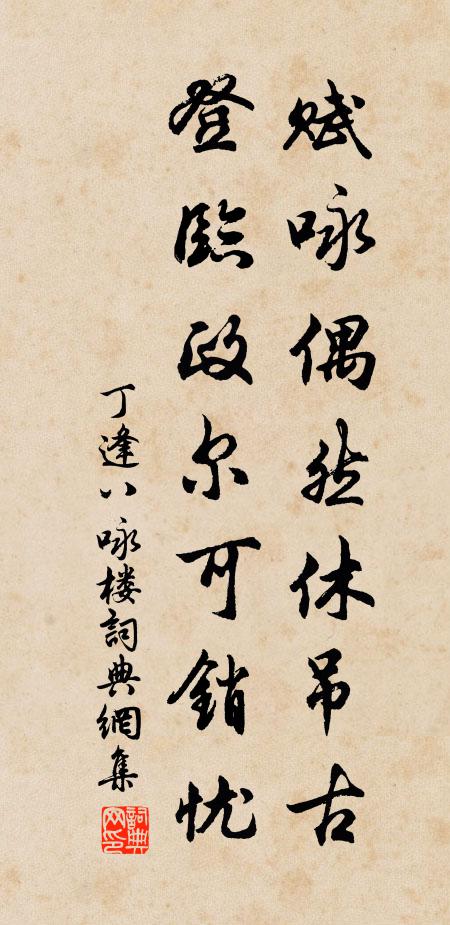 赋咏偶然休吊古
登临政尔可销忧
丁逢八咏楼詞典網集
詞典网印